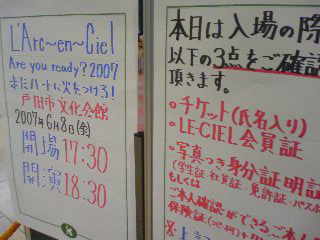 L'Arc~en~Ciel
Are you ready? 2007
またハートに火をつけろ!
戸田市文化会館
2007年6月8日(金)
開場 17:30
開演 18:30
本日は入場の際
以下の3点をご確認
頂きます。
・チケット(氏名入り)
・LE-CIEL会員証
・写真つき身分証明証
(学生証・社員証・免許証・パスポ
もしくは
ご本人確認ができるご本人
保険証